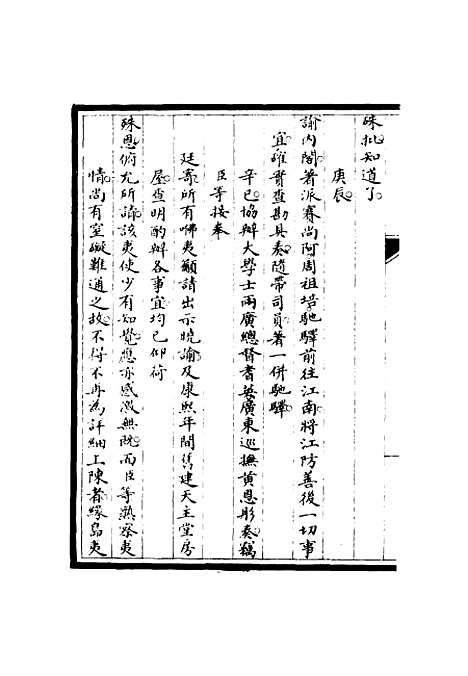 硃批知道了
庚辰
諭內閣著派賽尚阿周祖培馳驛前往江南將江防善後一切事
宜確實查勘具奏隨帶司員著一併馳驛
辛巳協辦大學士兩廣總督耆英廣東巡撫黃恩彤奏竊
臣等接奉
廷寄所有咈夷籲請出示曉諭及康熙年間舊建天主堂房
屋查明酌辦各事宜均已仰荷
殊恩俯允所請該夷使少有知覺應亦感激無既而臣等熟察夷
情尚有窒礙難通之故不得不再為詳細上陳者緣島夷